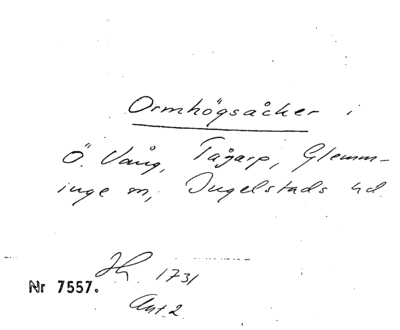 Ormhögsåcker i
Ö. Vång, Tågarp, Glemm-
inge sn, Ingelstads hd.
Jh 1731
Nr 7557.
Akt 2